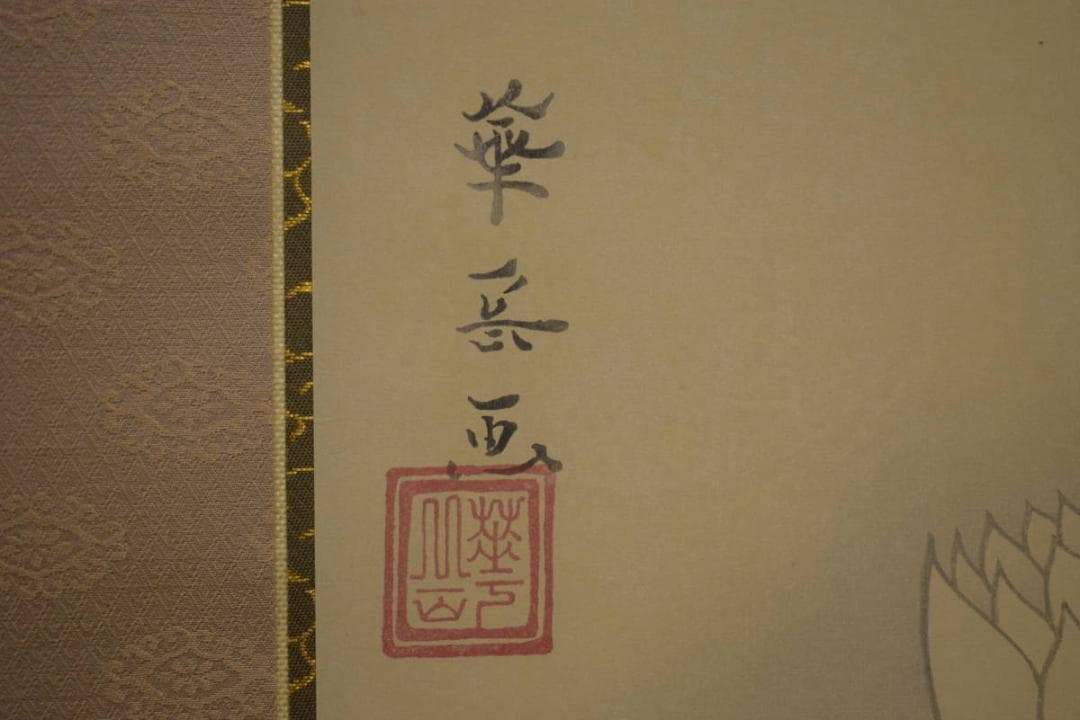 華岳画
華岳